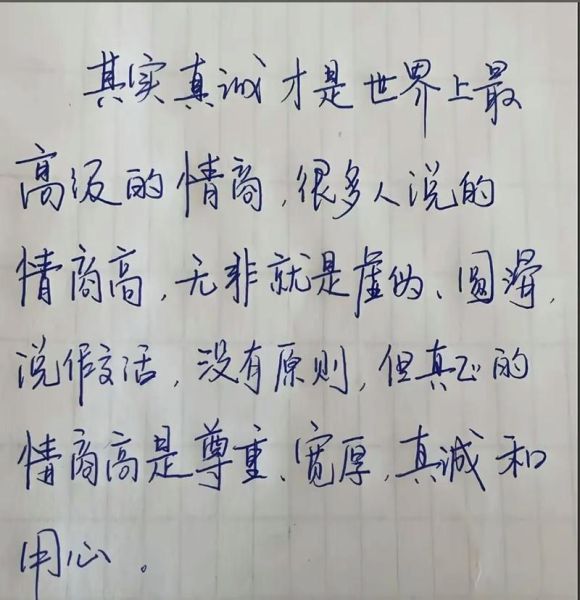 其实真诚才是世界上最
高级的情商,很多人说的
情商高,无非就是虚伪、圆滑,
说假话,没有原则,但真正的
情商高是尊重、宽厚,真诚和
用心。